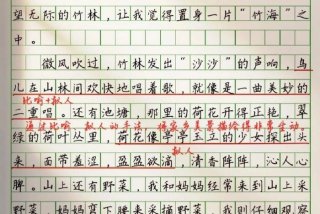 望无际的竹林，让我觉得置身一片“竹海”之
中。
微风吹过，竹林发出“沙沙”的声响，鸟
儿在山林间欢快地唱着歌，就像是一曲美妙的
比喻+拟人
二重唱。还有池塘，那里的荷花开得正艳，翠
通过比喻、拟人的手法，将家乡美景描绘得非常生动。
绿的荷叶丛里，荷花像亭亭玉立的少女探出头
拟人
来，面带羞涩，盈盈欲滴，清香阵阵，沁人心
脾。山上还有野菜，我和妈妈经常来到山上采